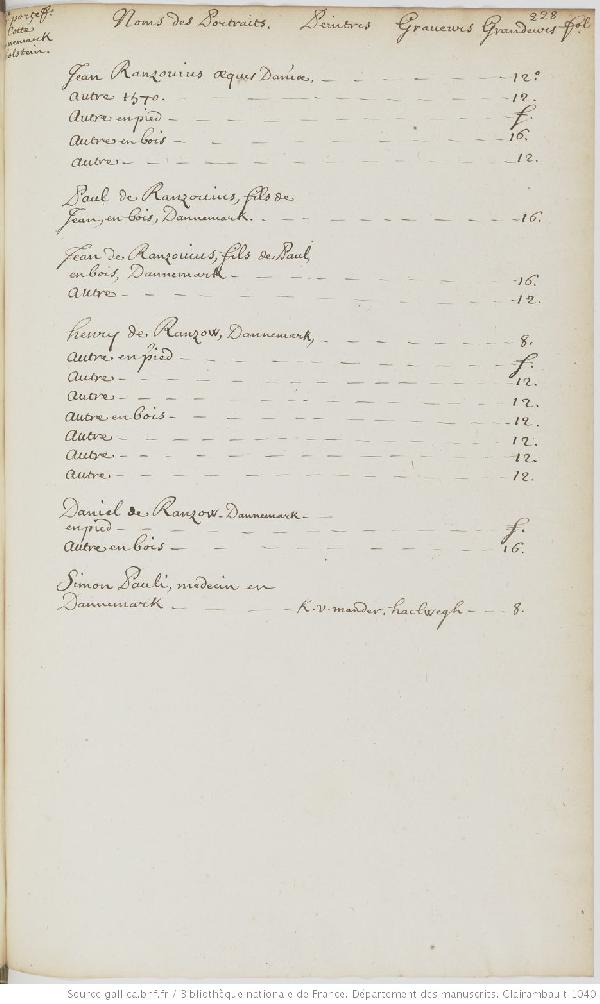 228
Noms des Portraits. Peintres Graveurs Grandeurs fol
Cotte
Dannemarck
holstein.
Jean Ranzovius æques Daniæ. 12.º
Autre 1570. 12.
Autre en pied f.
Autre en bois 16.
Autre 12.
Paul de Ranzovius, fils de
Jean, en bois, Dannemark. 16.
Jean de Ranzovius, fils de Paul
en bois, Dannemark 16.
Autre 12.
henry de Ranzow, Dannemark, 8.
Autre en pied f.
Autre 12.
Autre 12.
Autre en bois 12.
Autre 12.
Autre 12.
Autre 12.
Daniel de Ranzow Dannemark
en pied f.
Autre en bois 16.
Simon Pauli, medecin en
Dannemarck K. v. mander. haelwegh 8.
Source gallica.bnf.fr / Bibliothèque nationale de France. Département des manuscrits. Clairambault 1040